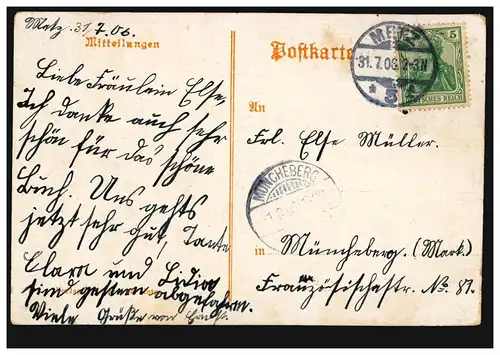 Metz. 31.7.06.
Mitteilungen
Liebe Fräulein Else,
Ich danke auch sehr
schön für das schöne
Buch. Uns gehts
jetzt sehr gut, Tante
Clara und Lidia
sind gestern abgefahren.
Viele Grüße von
Postkarte
METZ
31.7.06. 2-3N
* 5
5
DEUTSCHES REICH
An
Frl. Else Müller.
MÜNCHEBERG
in Müncheberg. (Mark.)
Französischestr. No. 87.